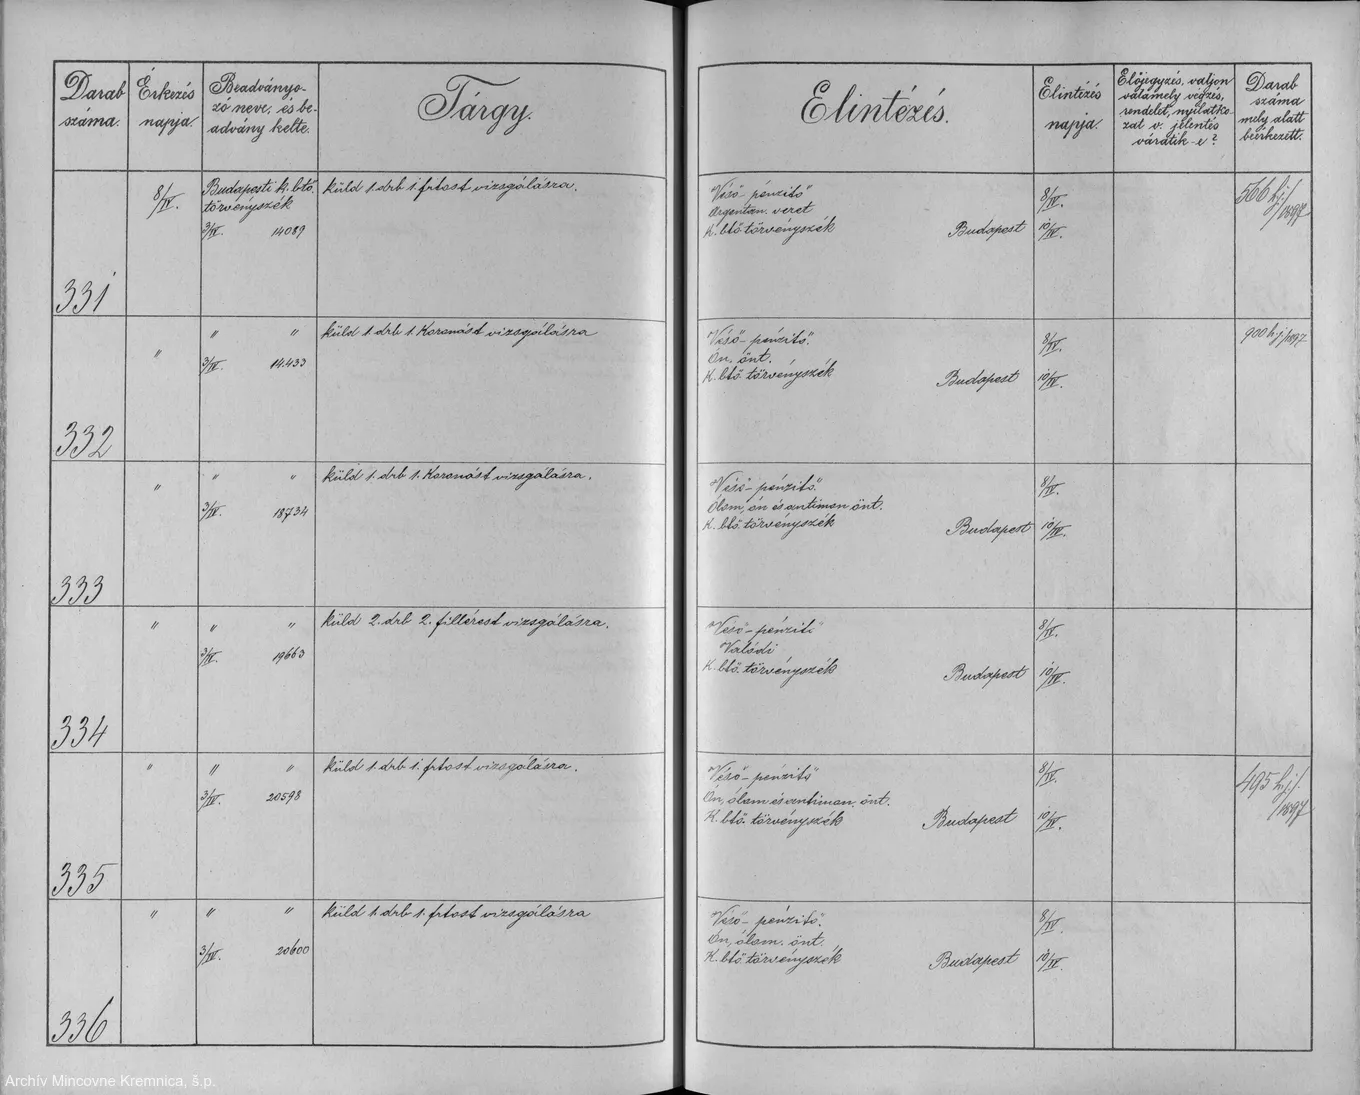 Darab száma.
Érkezés napja.
Beadványozó neve, és beadvány kelte.
Tárgy.
Elintézés.
Elintézés napja.
Előjegyzés, valjon valamely végzés, rendelet, nyilatkozat v. jelentés váratik-e?
Darab száma mely alatt beérkezett.
331
8/IV.
Budapesti k. btő.
törvényszék
3/IV 14089
küld 1 drb 1 frtost vizsgálásra.
Véső-pénzitő
Argentan veret
K. btő törvényszék Budapest
8/IV.
10/IV.
566 h.j/1897
332
"
" "
3/IV. 14.433
küld 1 drb 1 Koronást vizsgálásra
Véső-pénzitő.
Ón, önt.
K. btő. törvényszék Budapest
8/IV.
10/IV.
900 h.j/1897
333
"
" "
3/IV. 18734
küld 1. drb 1. Koronást vizsgálásra.
Véső-pénzitő
Ólom, ón és antimon önt.
K. btő törvényszék Budapest
8/IV.
10/IV.
334
"
" "
3/IV. 19663
küld 2. drb 2. fillérest vizsgálásra.
Véső-pénzitő
Valódi
K. btő. törvényszék Budapest
8/IV.
10/IV.
335
"
" "
3/IV. 20598
küld 1 drb 1. frtost vizsgálásra.
Véső-pénzitő
Ón, ólom és antimon. önt.
K. btő. törvényszék Budapest
8/IV.
10/IV.
495 h.j/1897
336
"
" "
3/IV. 20600
küld 1 drb 1. frtost vizsgálásra
Véső-pénzitő.
Ón, ólom. önt.
K. btő törvényszék Budapest
8/IV.
10/IV.
Archív Mincovne Kremnica, š.p.